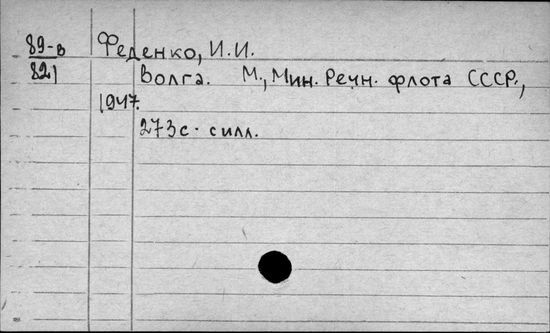 89-в Феденко, И.И.
821 Волга. М., Мин. Речн. флота СССР.,
1947.
273с. силл.